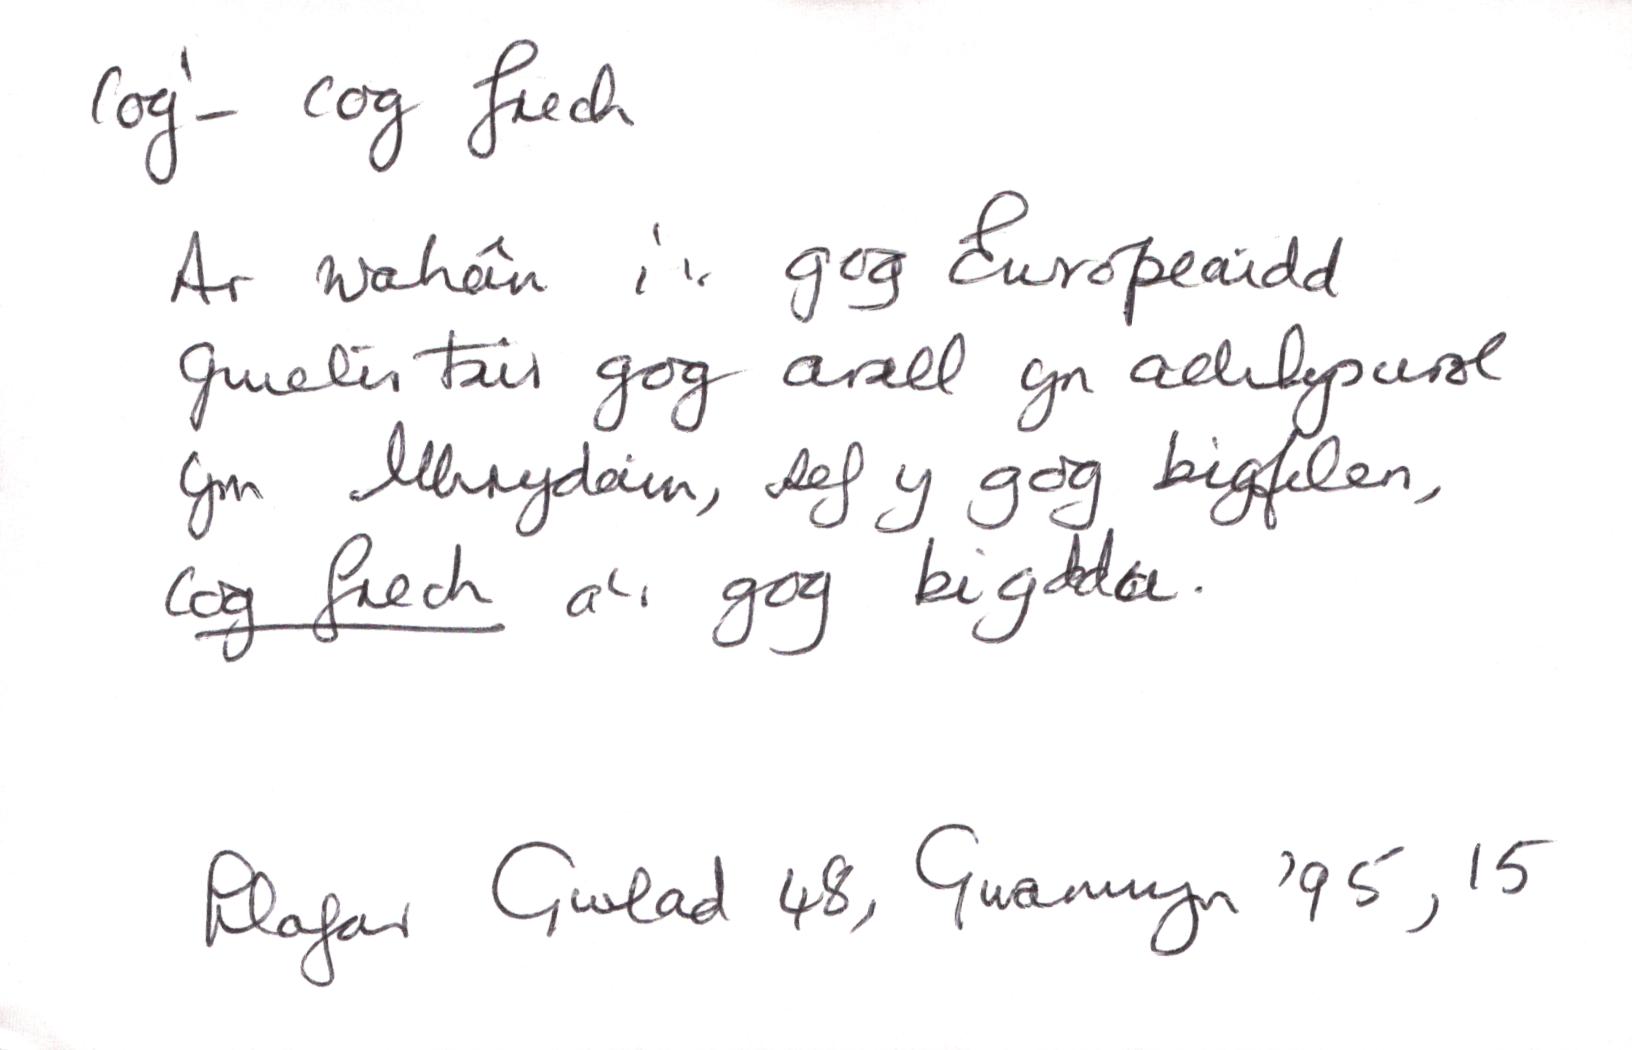 cog¹ - cog frech
Ar wahân i'r gog Europeaidd
gwelir tair gog arall yn achlysurol
ym Mhrydain, sef y gog bigfelen,
cog frech a'r gog bigddu.
Llafar Gwlad 48, Gwanwyn '95, 15